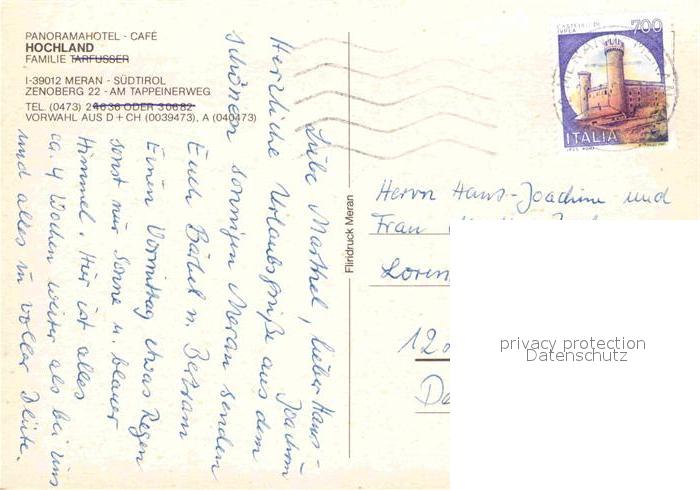 PANORAMAHOTEL - CAFÉ
HOCHLAND
FAMILIE TARFUSSER
I-39012 MERAN - SÜDTIROL
ZENOBERG 22 - AM TAPPEINERWEG
TEL. (0473) 24636 ODER 30682
VORWAHL AUS D + CH (0039473), A (040473)
Liebe Marthel, lieber Hans-
Joachim
Herzliche Urlaubsgrüße aus dem
schönen sonnigen Meran senden
Euch Bärbel u. Betram
Einen Vormittag etwas Regen
sonst nur Sonne u. blauer
Himmel. Hier ist alles
ca. 4 Wochen weiter als bei uns
und alles in voller Blüte.
Fliridruck Meran
CASTELLO DI
IVREA
700
ITALIA
Herrn Hans-Joachim und
Frau
Loren
120
De
privacy protection
Datenschutz